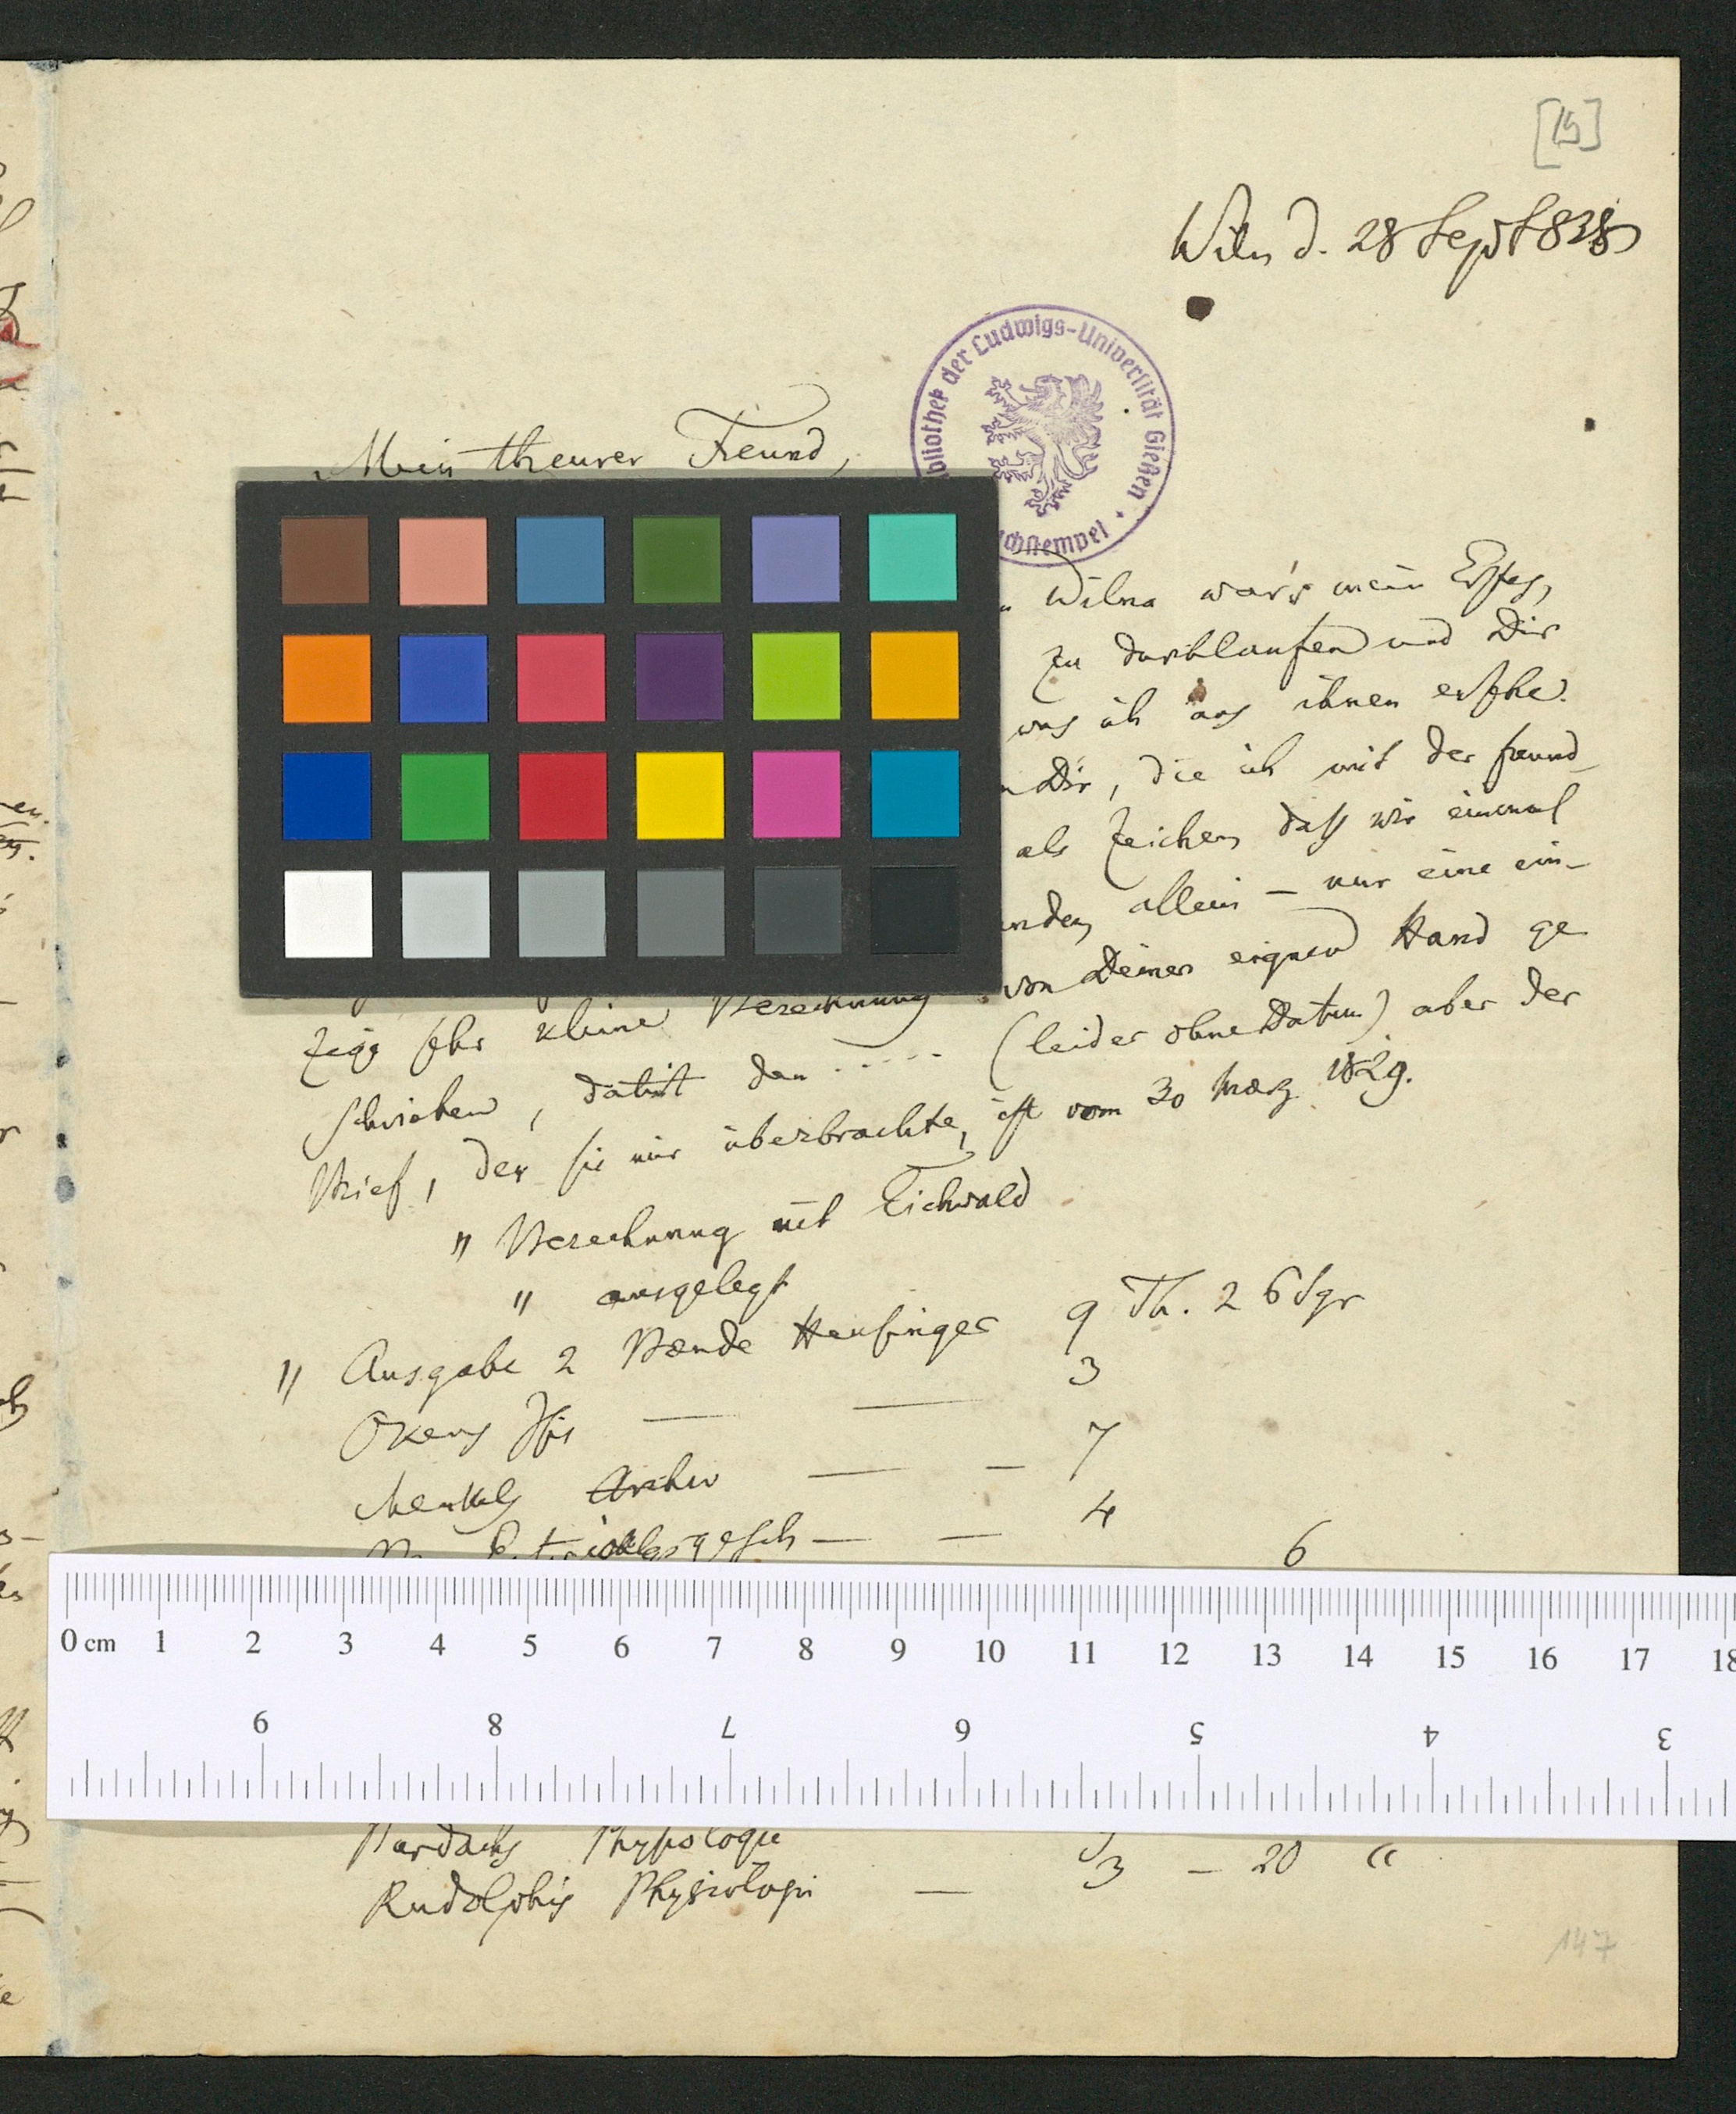 [15]
Wiln d. 28 Sept 1838
bliothek der Ludwigs-Universität Gießen
chstempel
Mein theurer Freund,
Wilna war's mein Erstes,
zu durchlaufen und Dir
was ich aus ihnen ersehe.
Dir, die ich mit der freund
als Zeichen daß wir einmal
allein – nur eine ein-
von Deiner eignen Hand ge
zige sehr kleine Berechnung
schrieben, datirt den .... (leider ohne Datum) aber der
Brief, der sie mir überbrachte, ist vom 30 März 1829.
" Berechnung mit Eichwald
" ausgelegt
" Ausgabe 2 Bænde Heusinger 9 Th. 26 Sgr
Okens Isis — — 3
Meckels Archiv — – 7
gesch — — 4
6
0 cm 1 2 3 4 5 6 7 8 9 10 11 12 13 14 15 16 17 18
9 8 7 6 5 4 3
Burdachs Physiologie
Rudolphis Physiologi — 3 – 20 "
147